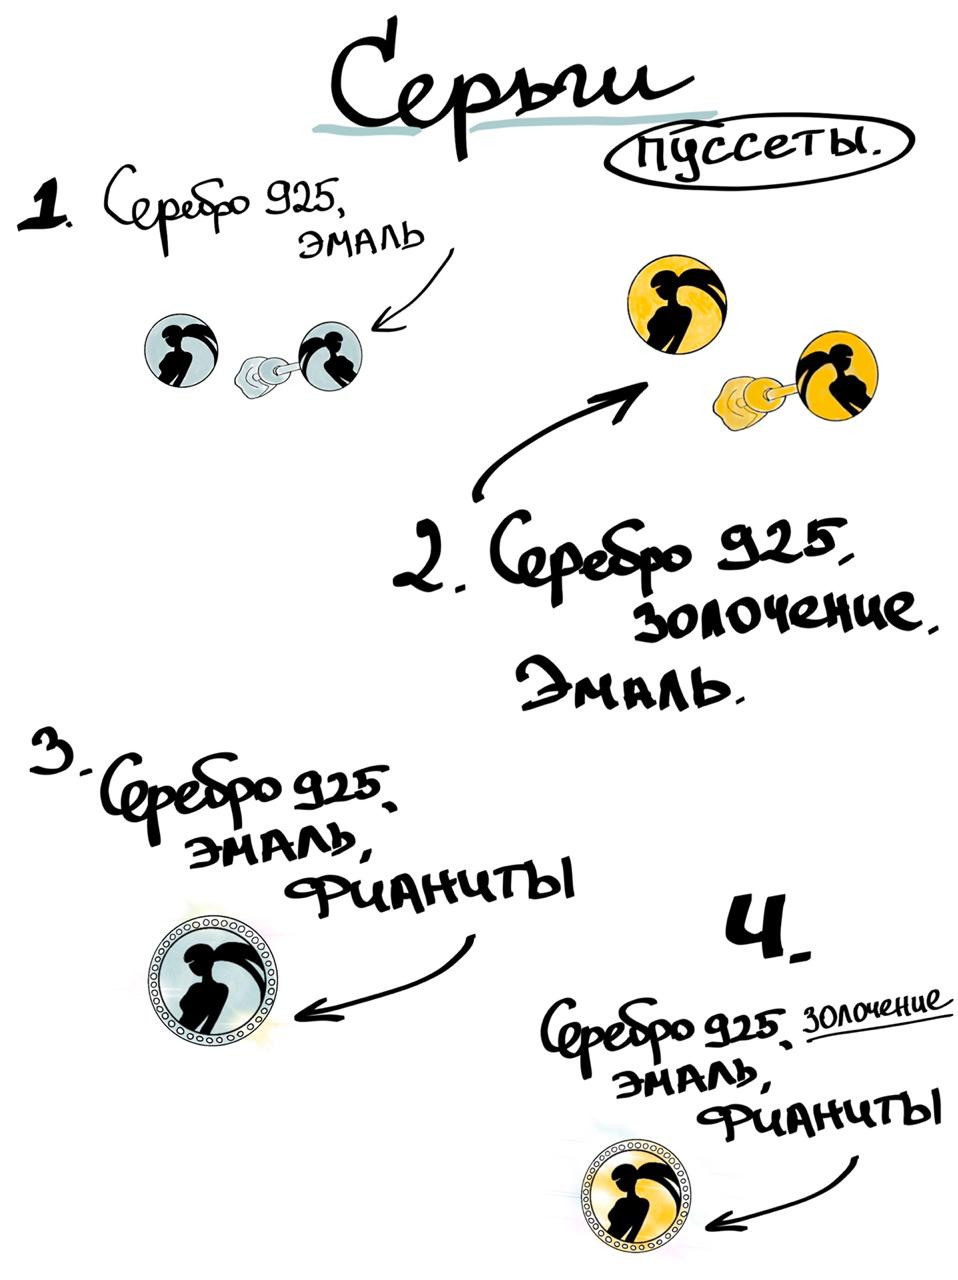 Серьги
пуссеты.
1. Серебро 925,
эмаль
2. Серебро 925,
золочение.
Эмаль.
3. Серебро 925,
эмаль,
фианиты
4.
Серебро 925, золочение
эмаль,
фианиты